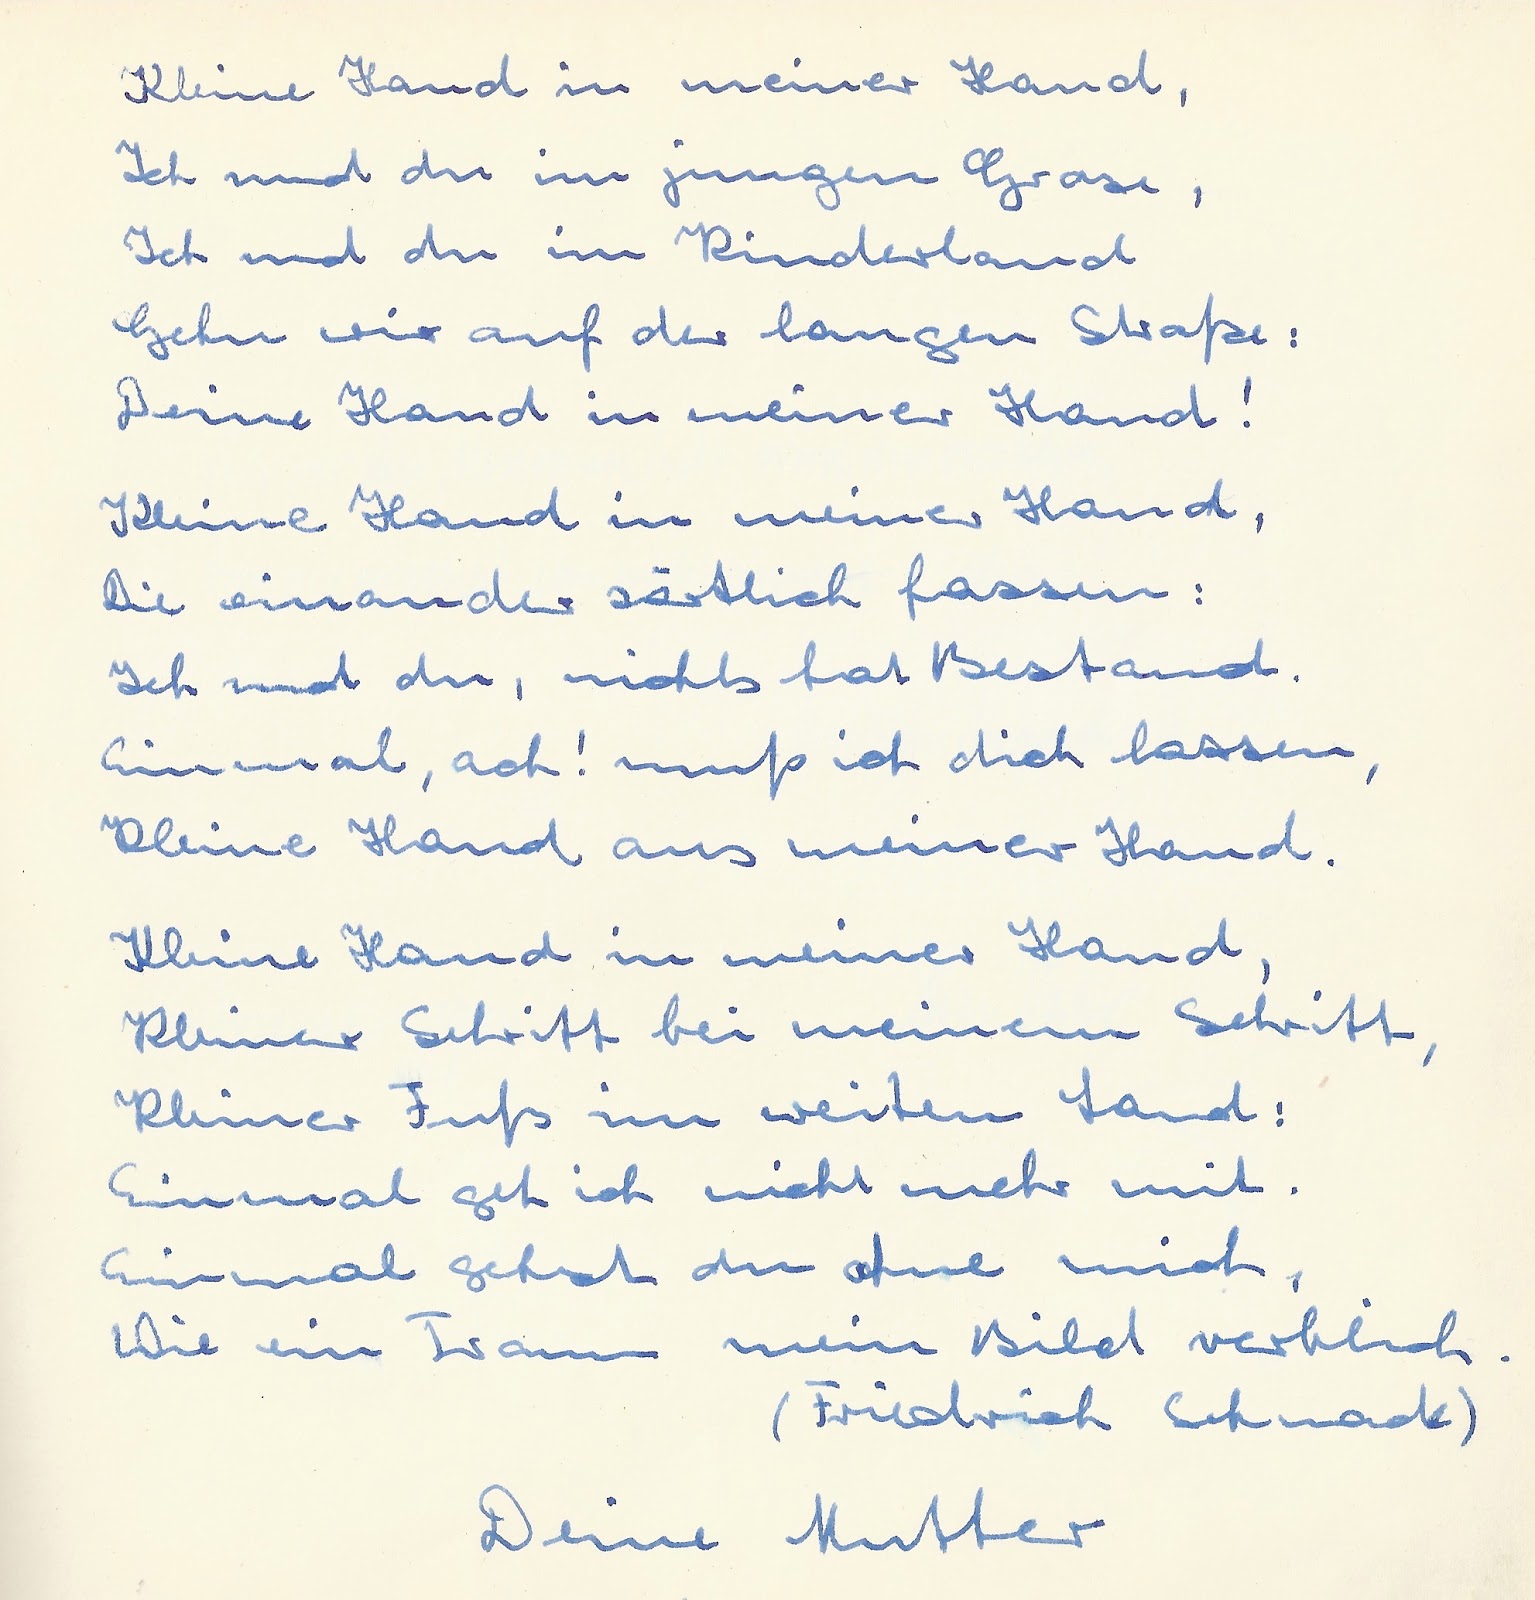 Kleine Hand in meiner Hand,
Ich und du im jungen Grase,
Ich und du im Kinderland
Gehn wir auf der langen Straße:
Deine Hand in meiner Hand!
Kleine Hand in meiner Hand,
Die einander zärtlich fassen:
Ich und du, nichts hat Bestand.
Einmal, ach! muß ich dich lassen,
Kleine Hand aus meiner Hand.
Kleine Hand in meiner Hand,
Kleiner Schritt bei meinem Schritt,
Kleiner Fuß im weiten Land:
Einmal geh ich nicht mehr mit.
Einmal gehst du ohne mich,
Wie ein Traum mein Bild verblich.
(Friedrich Schnack)
Deine Mutter